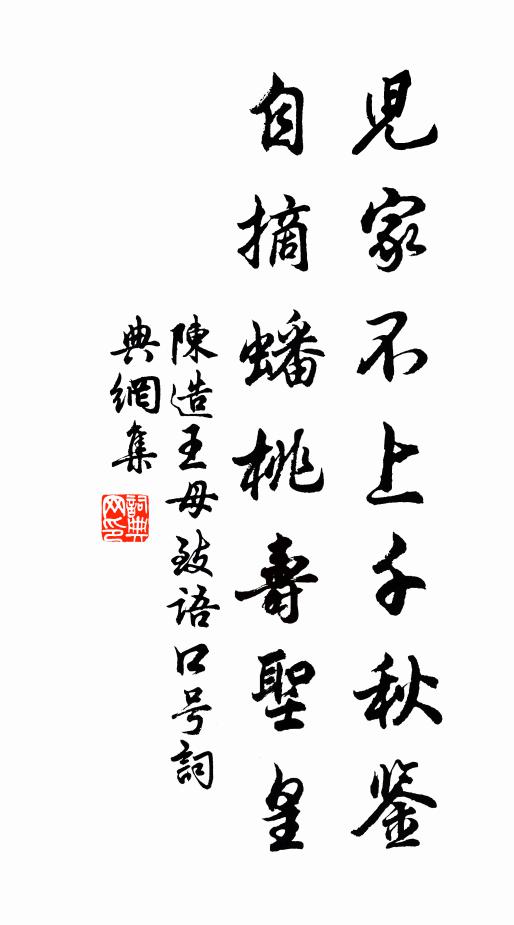 児家不上千秋鑒
自摘蟠桃壽聖皇
陳造王母致語口号詞
典網集
詞典網印